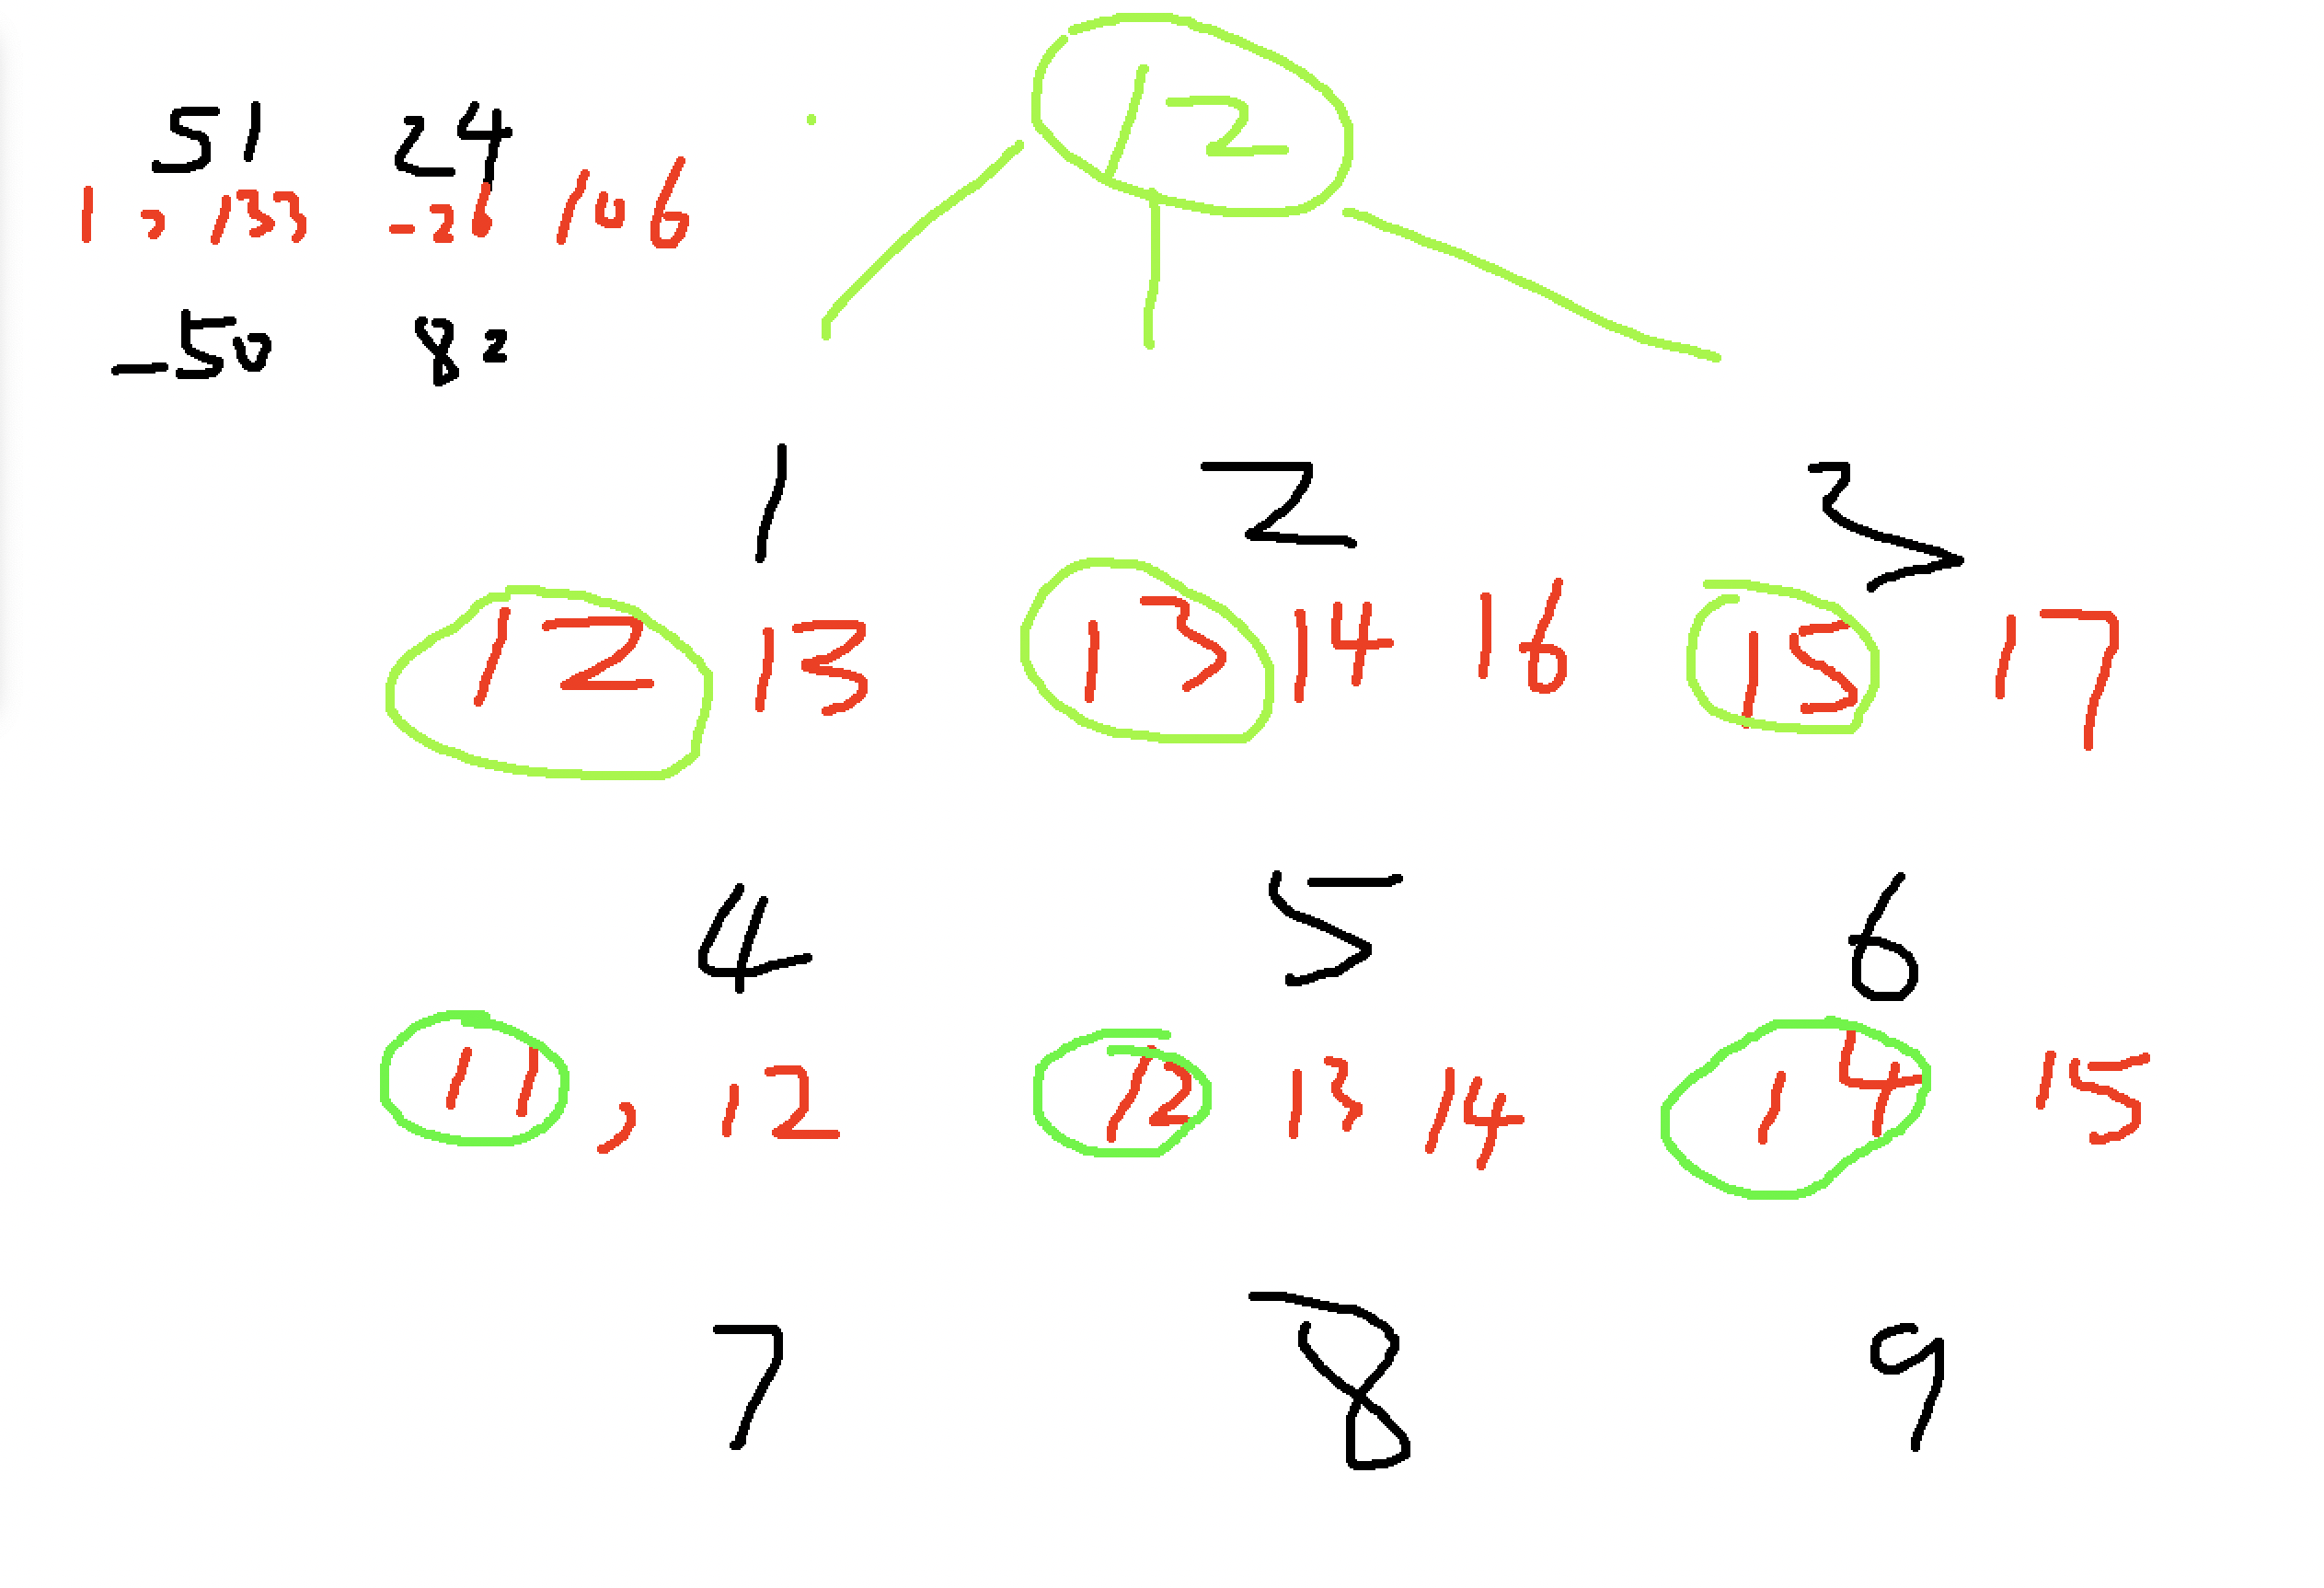 12
51 24
1 , 133 -26 106
-50 82
1 2 3
12 13 13 14 16 15 17
4 5 6
11 , 12 12 13 14 14 15
7 8 9